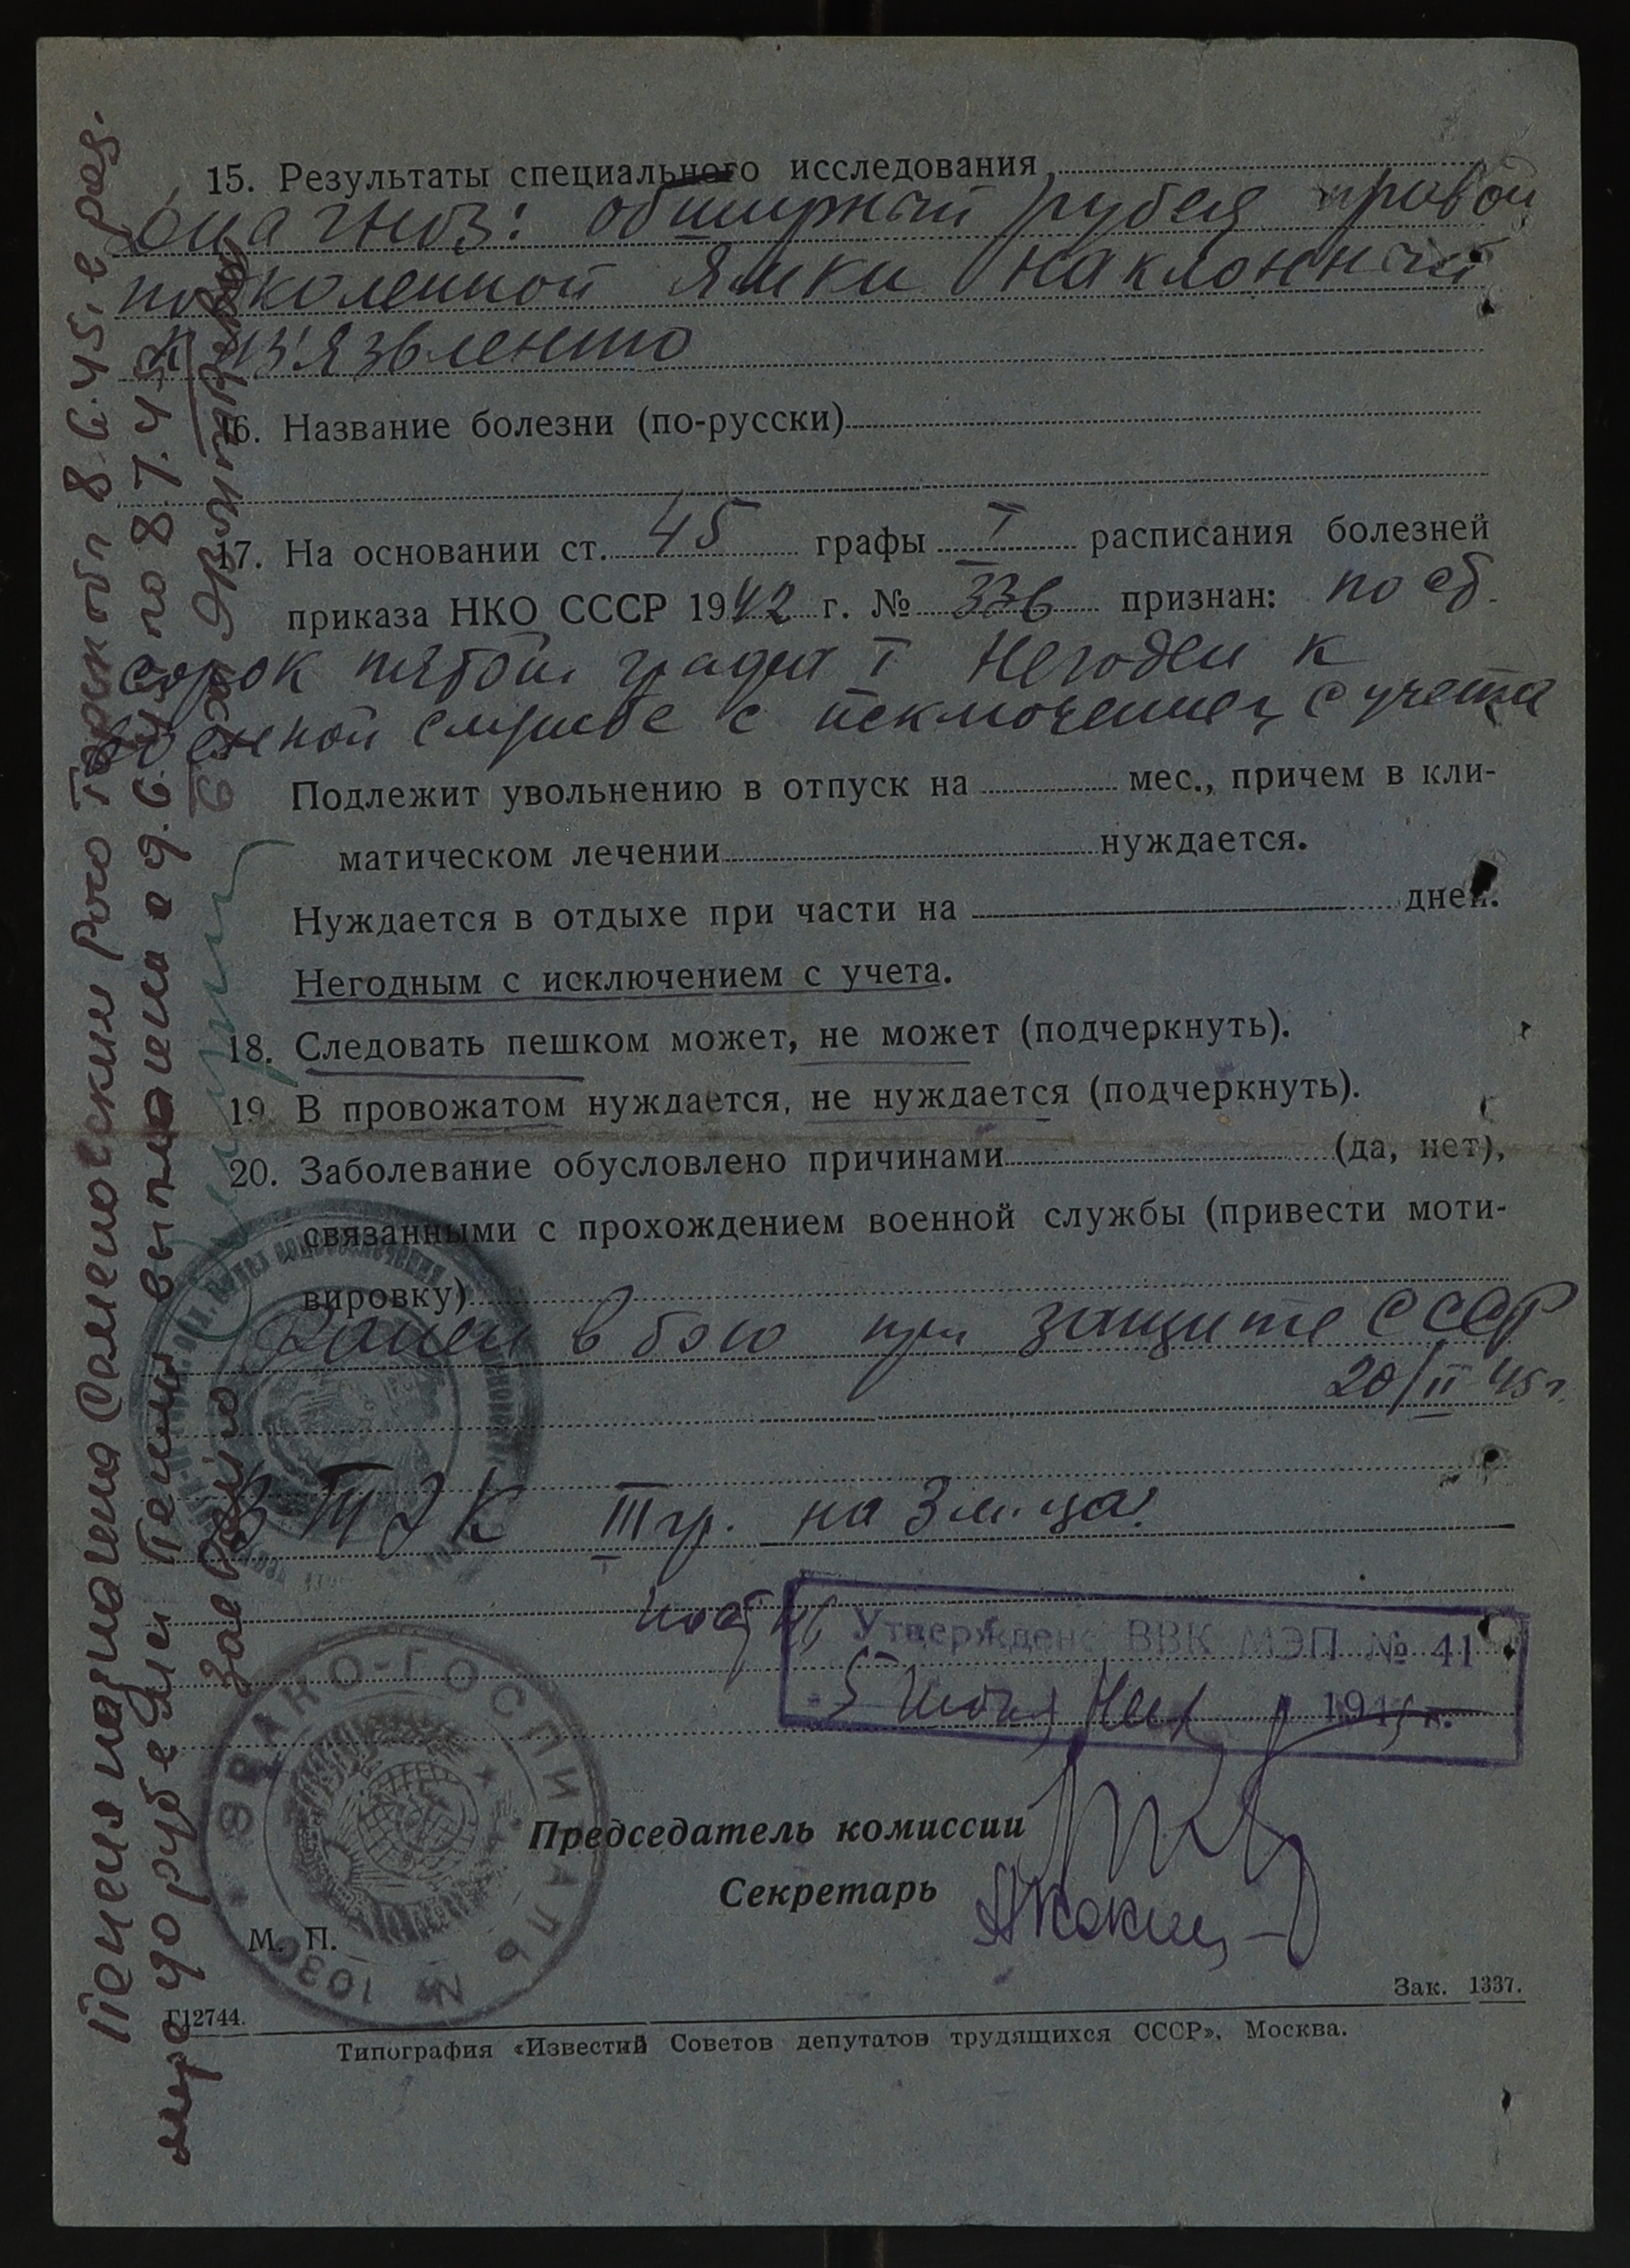 15. Результаты специального исследования
Диагноз: обширный рубец правой
подколенной ямки наклонный
к из'язвлению
16. Название болезни (по-русски)
17. На основании ст. 45 графы I расписания болезней
приказа НКО СССР 1942 г. № 336 признан: по ст.
сорок пятой графа I Негоден к
военной службе с исключением с учета
Подлежит увольнению в отпуск на мес., причем в кли-
матическом лечении нуждается.
Нуждается в отдыхе при части на дней.
Негодным с исключением с учета.
18. Следовать пешком может, не может (подчеркнуть).
19. В провожатом нуждается, не нуждается (подчеркнуть).
20. Заболевание обусловлено причинами (да, нет),
связанными с прохождением военной службы (привести моти-
вировку)
Ранен в бою при защите СССР
20/II 45 г.
ВТЭК III гр. на 3 м-ца
Утверждено ВВК МЭП № 41
5 Июня 1945 г.
Председатель комиссии
Секретарь
М. П.
ЭВАКО-ГОСПИТАЛЬ № 1030
Г12744.
Зак. 1337.
Типография «Известий Советов депутатов трудящихся СССР», Москва.
Пенсия назначена 8.6.45, в раз.
рубля Пенсия выплачена с 9.6. по 8.7.45